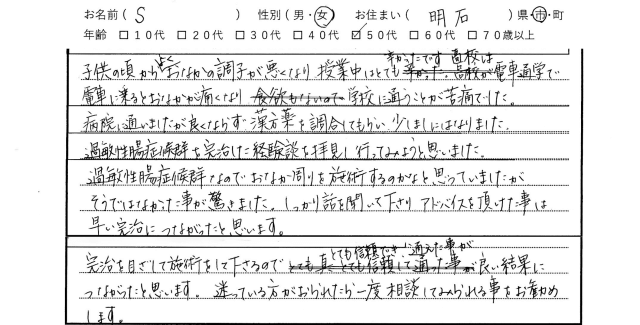 お名前( S ) 性別(男・女) お住まい( 明石 )県・市・町
年齢 □10代 □20代 □30代 □40代 ☑50代 □60代 □70歳以上
子供の頃からよくおなかの調子が悪くなり 授業中はとても辛かったです 高校は電車通学で
電車に乗るとおなかが痛くなり 学校に通うことが苦痛でした。
病院に通いましたが良くならず 漢方薬を調合してもらい 少しましにはなりました。
過敏性腸症候群を完治した経験談を拝見し 行ってみようと思いました。
過敏性腸症候群なので おなか周りを施術するのかなと思っていましたが
そうではなかった事が驚きました。しっかり話を聞いて下さり アドバイスを頂けた事は
早い完治につながったと思います。
完治を目ざして施術をして下さるので とても信頼でき 通えた事が 良い結果に
つながったと思います。迷っている方がおられたら一度相談してみられる事をお勧め
します。